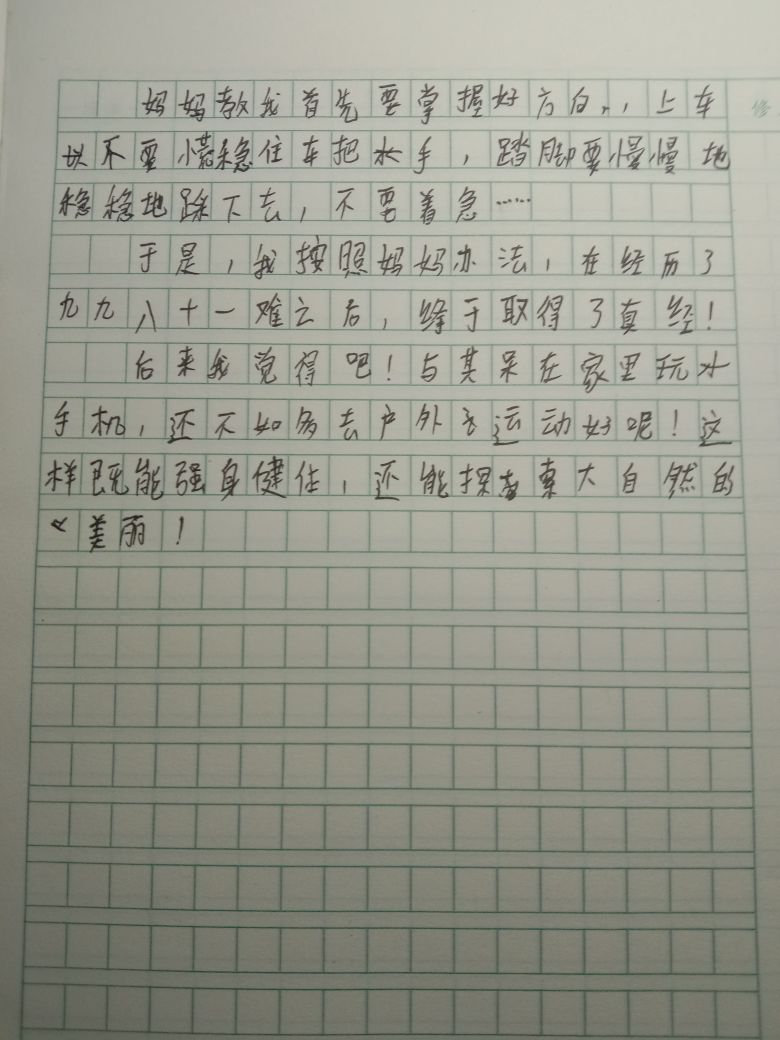 妈妈教我首先要掌握好方向,,上车
以不要慌稳住车把水手,踏脚要慢慢地
稳稳地踩下去,不要着急……
于是,我按照妈妈办法,在经历了
九九八十一难之后,终于取得了真经!
后来我觉得吧!与其呆在家里玩水
手机,还不如多去户外去运动好呢!这
样既能强身健体,还能探索大自然的
美丽!
修